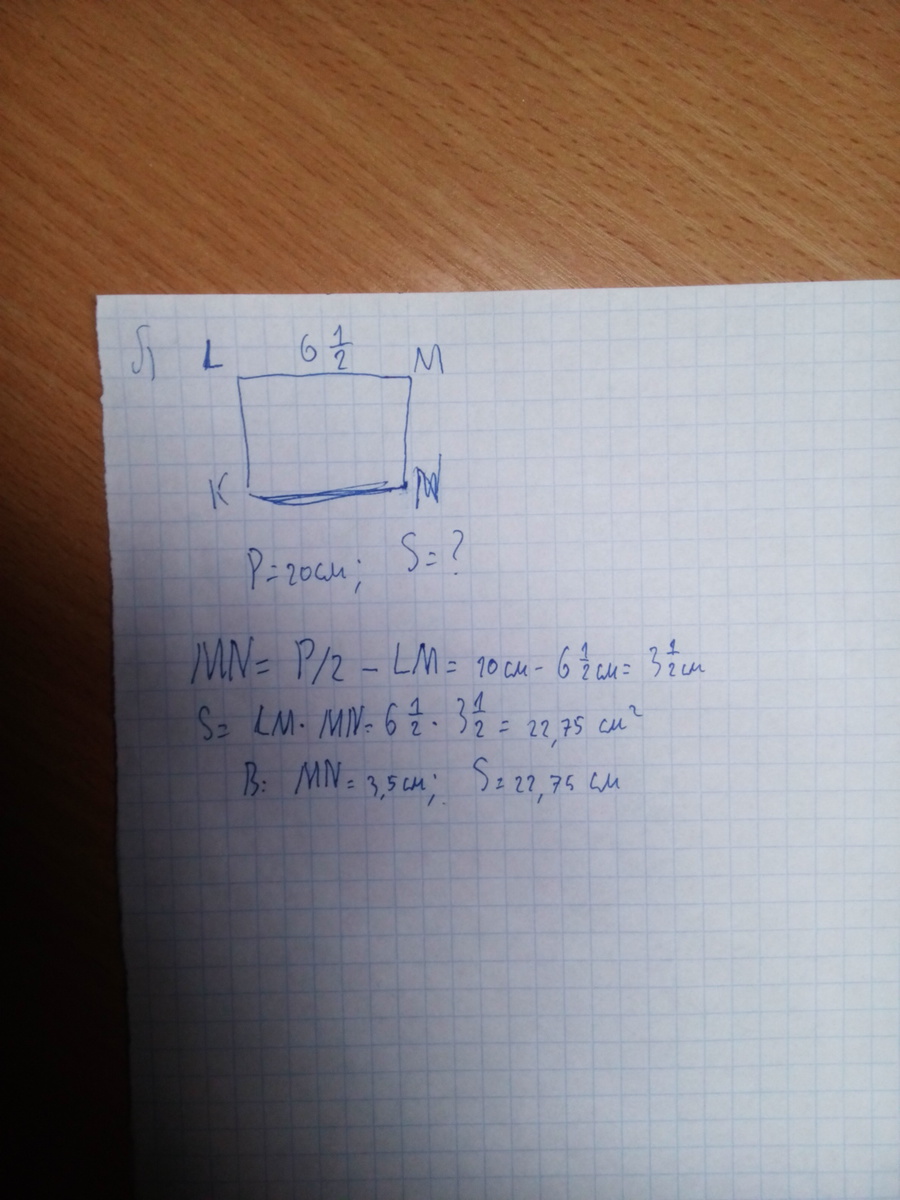 б) L 6 1/2 M
K N
P=20см; S=?
MN= P/2 - LM= 10см- 6 1/2 см= 3 1/2 см
S= LM· MN= 6 1/2 · 3 1/2 = 22,75 см²
В: MN= 3,5см; S=22,75 см